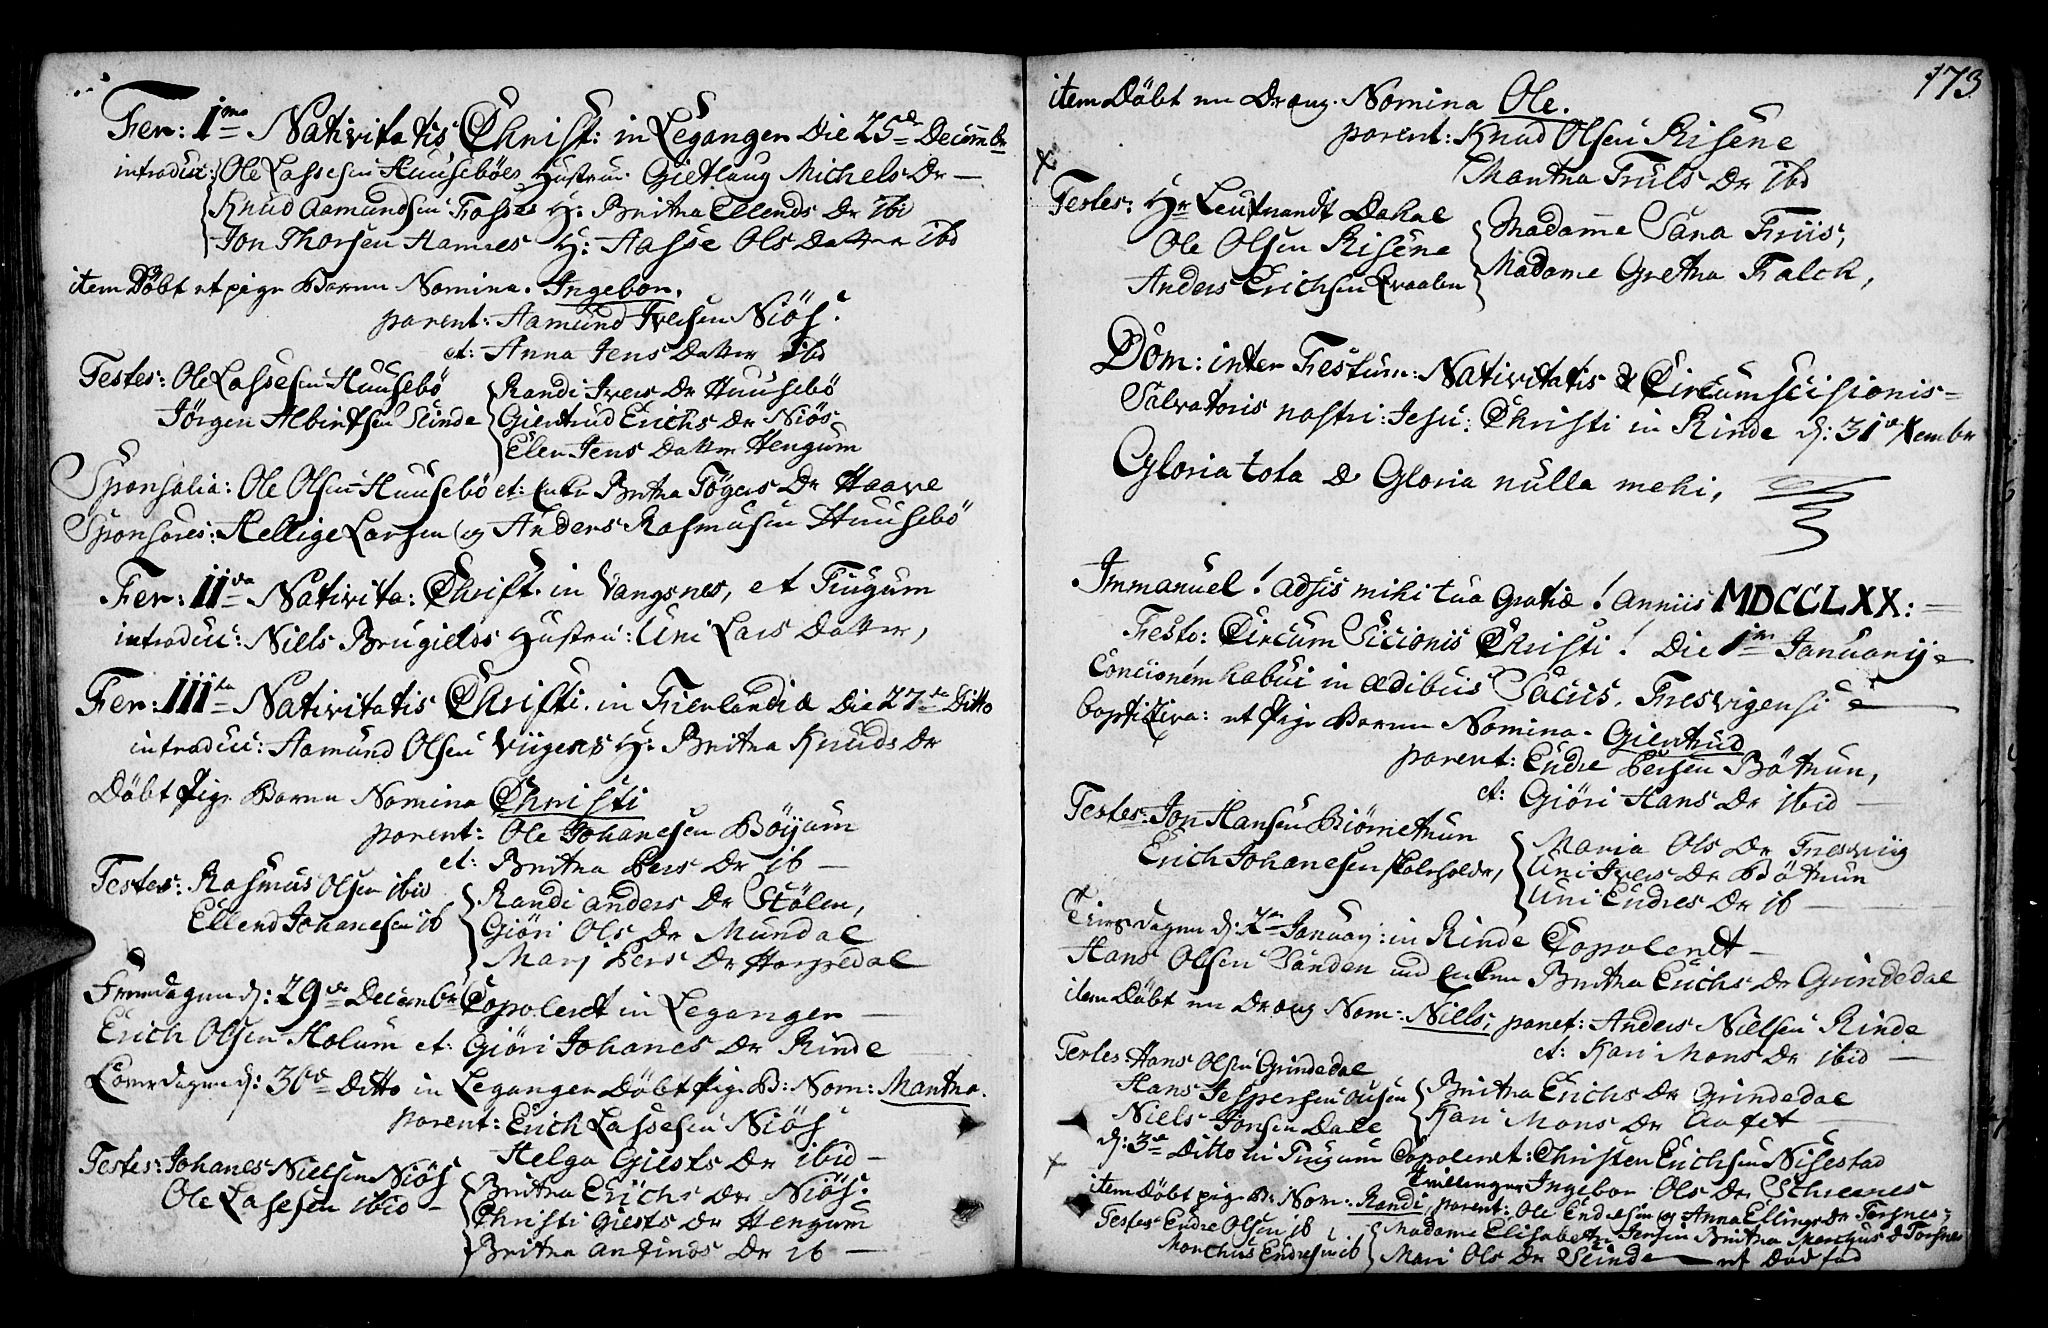 Fer: I.ma Nativitatis Christ: in Leganger Die 25de Decembr
introduc: Ole Lassesen Huusebøes Hustru. Giertlaug Michels Dr —
Knud Aamundsen Fosses H: Britha Ellends Dr ibid
Jon Thorsen Hamres H: Aasse Ols Datter ibd
item Døbt et pige Barn Nomina. Ingebor.
parent: Aamund Iversen Niøs.
et: Anna Jens Datter ibd
Testes: Ole Lassesen Huusebø
Jørgen Albertsen Slinde
Randi Ivers Dr Huusebø
Giertrud Erichs Dr Niøs
Elen Jens Datter Hengum
Sponsalia: Ole Olsen Huusebø et: Enke Britha Tøgers Dr Haave
Sponsores: Hellige Larsen og Anders Rasmusen Huusebø
Fer: II.da Nativita: Christ. in Vangsnes, et Tiugum
introduc: Niels Brugields Hustru: Uni Lars Datter,
Fer: III.tia Nativitatis Christi. in Fierlandia Die 27de Ditto
introduc: Aamund Olsen Viigens H: Britha Knuds Dr
Døbt Pige Barn Nomina Christi
parent: Ole Johanesen Bøyum
et: Britha Pers Dr ib —
Testes: Rasmus Olsen ibid
Ellend Johanesen ib
Randi anders Dr Stølen,
Giøri Ols Dr Mundal
Marj Pers Dr Harpedal
Fredagen d: 29de Decembr Copoleret in Leganger —
Erich Olsen Holum et: Giøri Johanes Dr Rinde
Løverdagen d: 30de Ditto in Leganger Døbt Pige B: Nom: Martha.
parent: Erich Lassesen Niøs
Helga Giests Dr ibid —
Testes: Johanes Nielsen Niøs
Ole Lasesen ibid —
Britha Erichs Dr Niøs:
Christi Giests Dr Hengum
Britha anfinds Dr ib —
173
item Døbt en Dreng. Nomina Ole.
parent: Knud Olsen Risene
Martha Truls Dr ibd
Testes: Hr Leutnandt Dahl
Ole Olsen Risene
Anders Erichsen
Madame Sara Friis,
Madame Gretha Falck,
Dom: inter Festum: Nativitatis & Circumscisionis —
Salvatoris nostri: Jesu: Christi in Rinde d: 31de Xembr
Gloria tota Deo Gloria nulla mihi,
Immanuel! adsis mihi tua Gratiæ! Anniis MDCCLXX: —
Festo: Circum Sicionis Christi! Die 1ma Januarij —
Concionem habui in ædibus Sacris, Fresvigensi —
baptizira: et Pige Barn Nomina. Giertrud
parent: Endre Persen Bøthun,
et: Giøri Hans Dr ibid —
Testes: Jon Hansen Biørnethun
Erich Johanesen skoleholder,
Maria Ols Dr Fresviig
Uni Ivers Dr Bøthun
Uni Endres Dr ib —
Tirsdagen d: 2de January: in Rinde Copoleret —
Hans Olsen Sanden med Enken Britha Erichs Dr Grindedal
item Døbt en Dreng Nom: Niells, parent: Anders Nielsen Rinde
et: Kari Mons Dr ibid —
Testes: Hans Olsen Grindedal
Hans Jespersen Ousen
Niels Jonsen Dale
Britha Erichs Dr Grindedal
Kari Mons Dr Aafet —
d: 3de Ditto in Tiugum Copoleret: Christen Erichsen Nisestad
Ingebor Ols Dr
item Døbt pige B: Nom: Randi, parent: Ole Endresen og Anna Ellings Dr Torsnes:
Testes Endre Olsen ib
Marchus Endresen ib
Madame Elisabeth Jensen Britha Marchus D Torsnes
Mari Ols Dr Slinde —